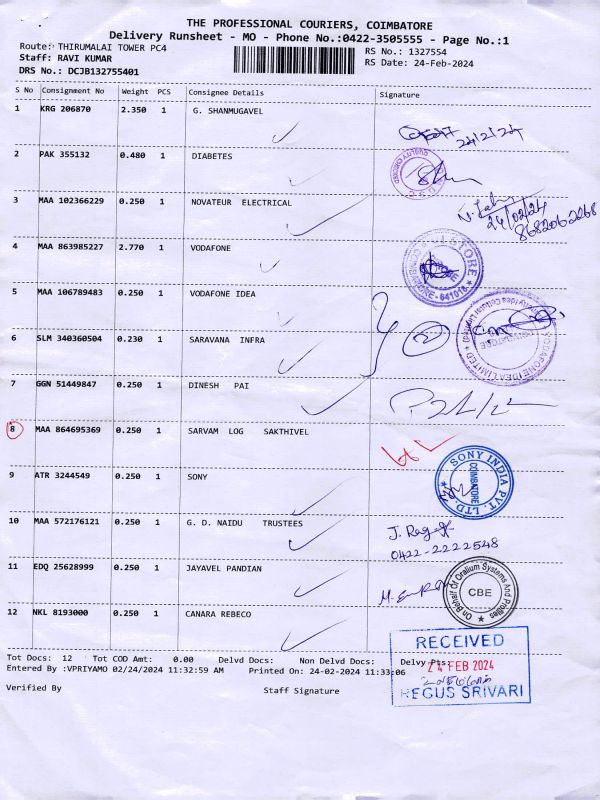 THE PROFESSIONAL COURIERS, COIMBATORE
Delivery Runsheet - MO - Phone No.:0422-3505555 - Page No.:1
Route: THIRUMALAI TOWER PC4
RS No.: 1327554
Staff: RAVI KUMAR
RS Date: 24-Feb-2024
DRS No.: DCJB132755401
S No Consignment No Weight PCS Consignee Details Signature
1 KRG 206870 2.350 1 G. SHANMUGAVEL
24/2/24
2 PAK 355132 0.480 1 DIABETES
QUALITY CHECKED
3 MAA 102366229 0.250 1 NOVATEUR ELECTRICAL
24/02/24
8682062268
4 MAA 863985227 2.770 1 VODAFONE
STORE
COIMBATORE-641018
5 MAA 106789483 0.250 1 VODAFONE IDEA
VODAFONE IDEA LIMITED
6 SLM 340360504 0.230 1 SARAVANA INFRA
2
7 GGN 51449847 0.250 1 DINESH PAI
8 MAA 864695369 0.250 1 SARVAM LOG SAKTHIVEL
9 ATR 3244549 0.250 1 SONY
SONY INDIA PVT. LTD.
COIMBATORE
10 MAA 572176121 0.250 1 G. D. NAIDU TRUSTEES
0422-2222548
11 EDQ 25628999 0.250 1 JAYAVEL PANDIAN
On Behalf Of Oralium Systems And Profiles
CBE
12 NKL 8193000 0.250 1 CANARA REBECO
RECEIVED
Tot Docs: 12 Tot COD Amt: 0.00 Delvd Docs: Non Delvd Docs: Delvy Pts:
24 FEB 2024
Entered By :VPRIYAMO 02/24/2024 11:32:59 AM Printed On: 24-02-2024 11:33:06
REGUS SRIVARI
Verified By Staff Signature